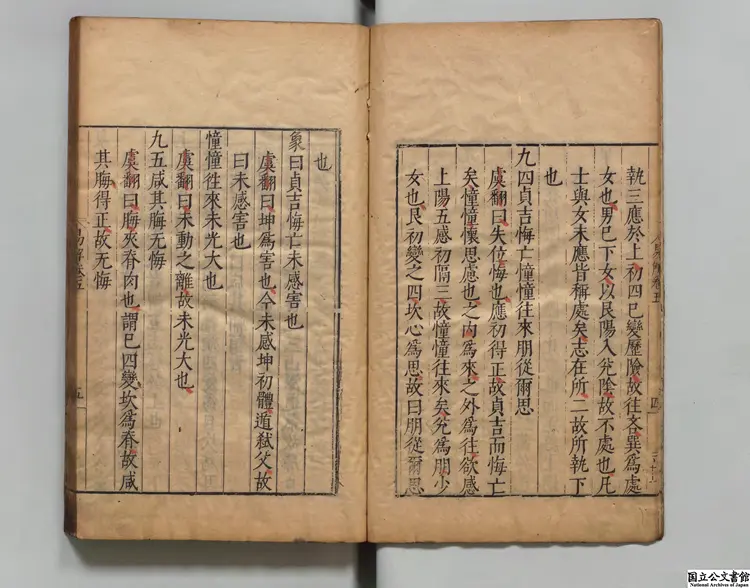 執三應於上初四已變歷險故往吝巽爲處
女也男已下女以艮陽入兊陰故不處也凡
士與女未應皆稱處矣志在所二故所執下
也
九四貞吉悔亡憧憧往來朋從爾思
虞翻曰失位悔也應初得正故貞吉而悔亡
矣憧憧懷思慮也之内爲來之外爲往欲感
上陽五感初隔三故憧憧往來矣兊爲朋少
女也艮初變之四坎心爲思故曰朋從爾思
也
象曰貞吉悔亡未感害也
虞翻曰坤爲害也今未感坤初體遁弑父故
曰未感害也
憧憧徃來未光大也
虞翻曰未動之離故未光大也
九五咸其脢无悔
虞翻曰脢夾脊肉也謂已四變坎爲脊故咸
其脢得正故无悔
易解卷五
四
五
国立公文書館
National Archives of Japan